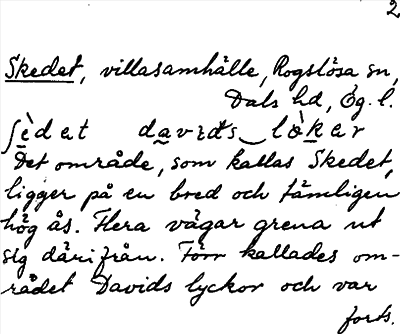 2
Skedet, villasamhälle, Rogslösa sn,
Dals hd, Ög. l.
ʃèdet davids‿lòker
Det område, som kallas Skedet,
ligger på en bred och tämligen
hög ås. Flera vägar grena ut
sig därifrån. Förr kallades om-
rådet Davids lyckor och var
forts.